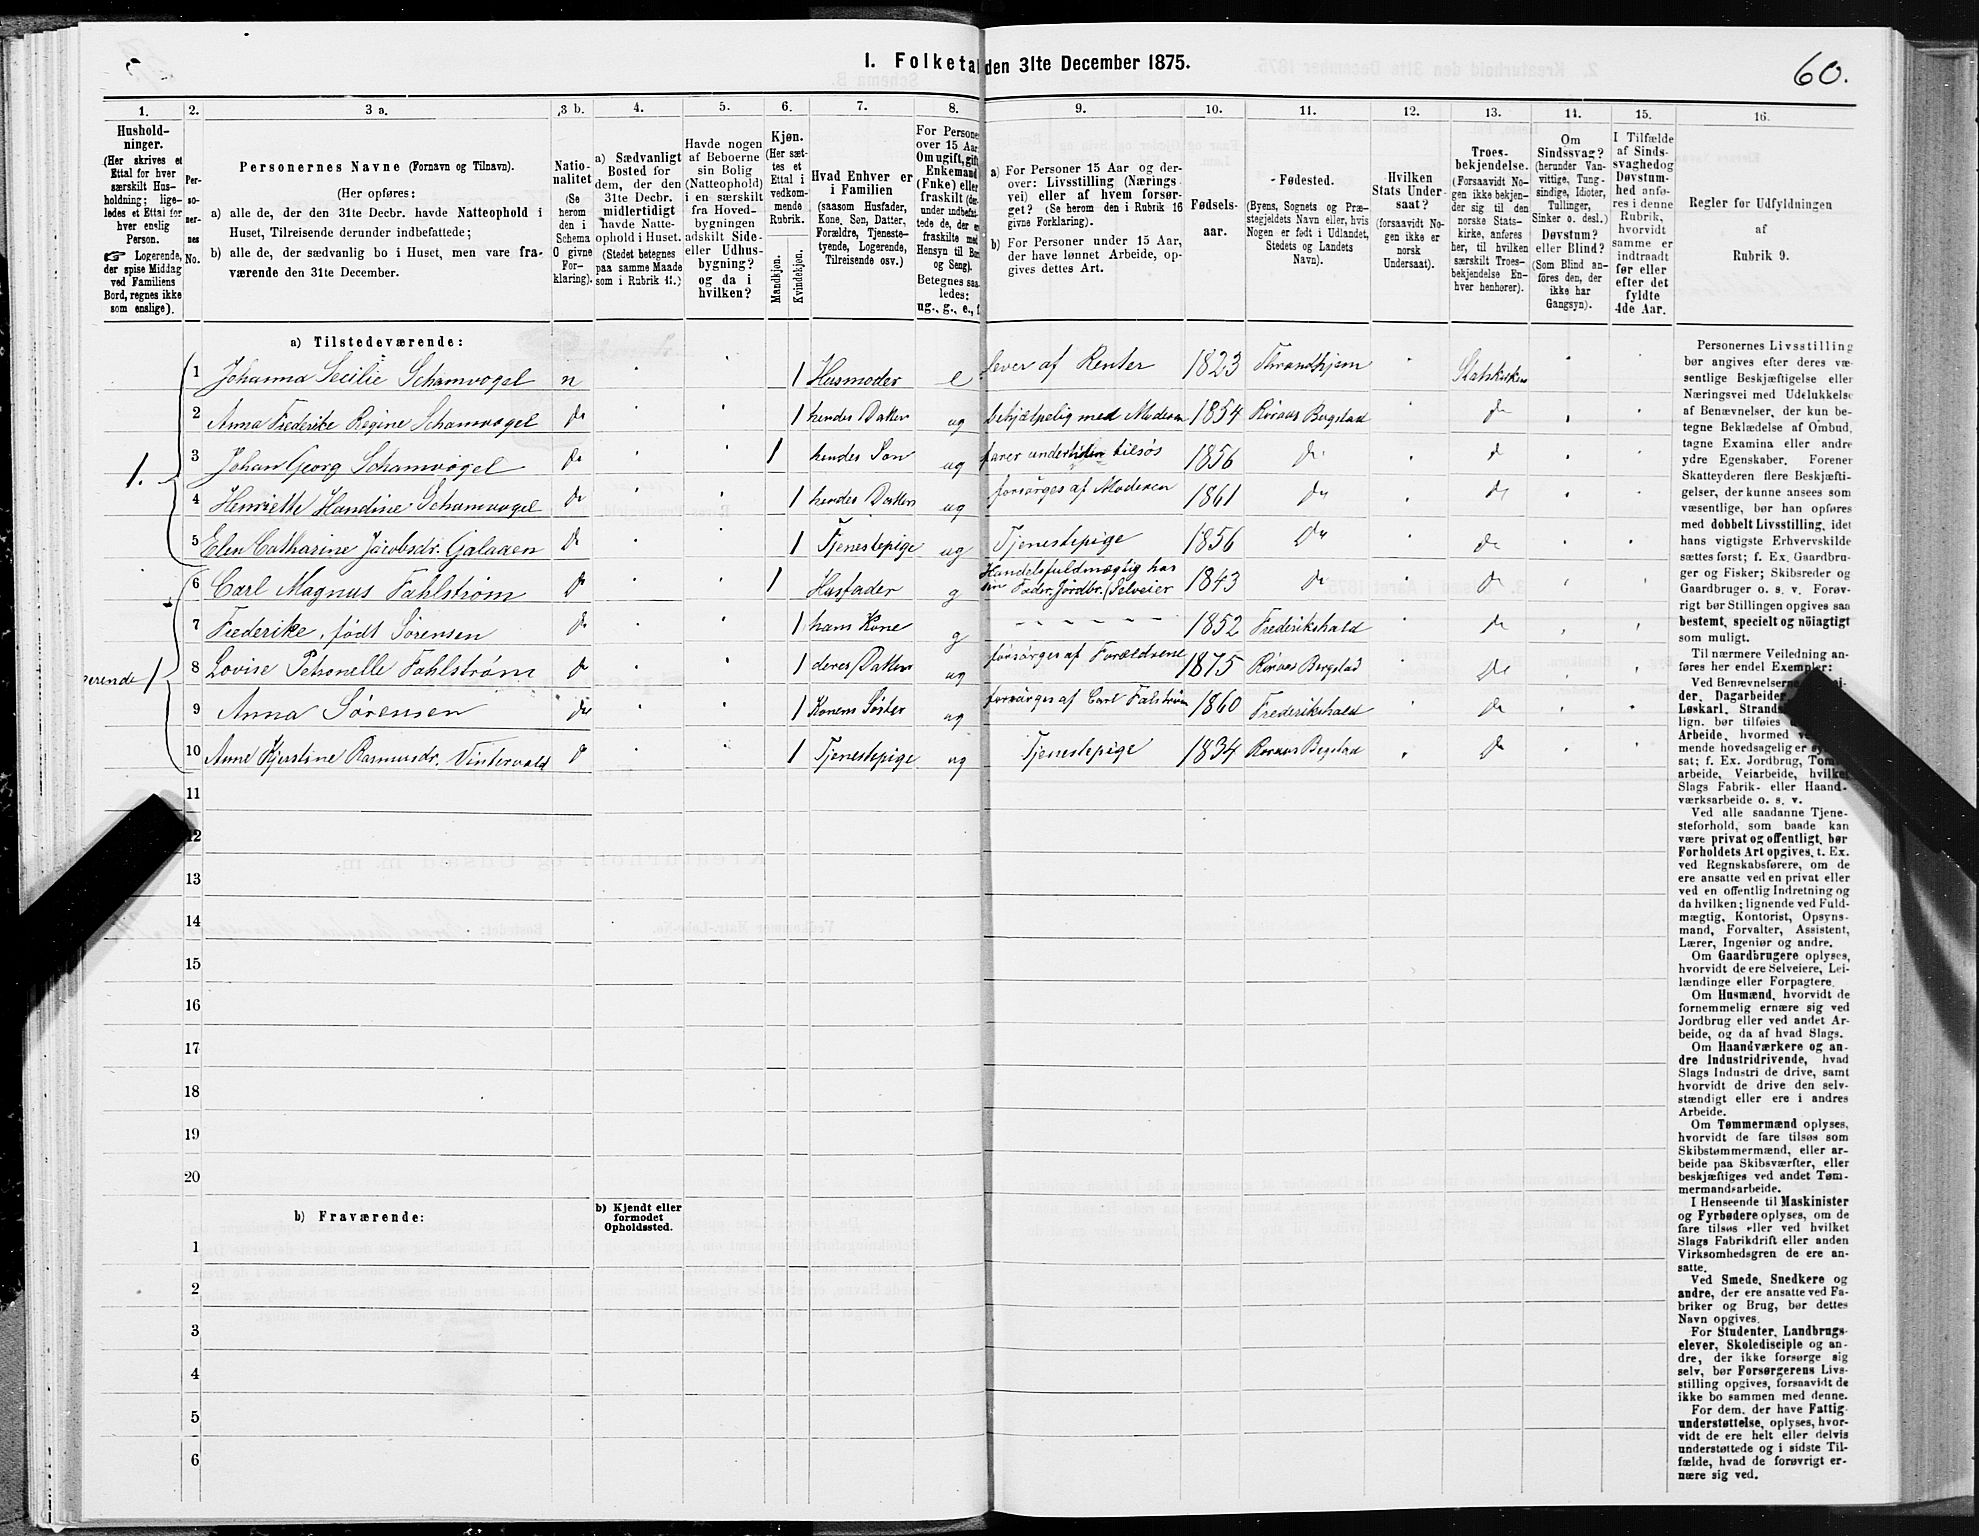 1. Folketal den 31te December 1875.
60.
1. 2. 3 a. 3 b. 4. 5. 6. 7. 8. 9. 10. 11. 12. 13. 14. 15. 16.
Hushold-
ninger.
(Her skrives et
Ettal for hver
særskilt Hus-
holdning; lige-
ledes et Ettal for
hver enslig
Person.
☞ Logerende,
der spise Middag
ved Familiens
Bord, regnes ikke
som enslige).
Per-
so-
ner-
nes
No.
Personernes Navne (Fornavn og Tilnavn).
(Her opføres:
a) alle de, der den 31te Decbr. havde Natteophold i
Huset, Tilreisende derunder indbefattede;
b) alle de, der sædvanlig bo i Huset, men vare fra-
værende den 31te December.
Natio-
nalitet
(Se
herom
den i
Schema
O givne
For-
klaring).
a) Sædvanligt
Bosted for
dem, der den
31te Decbr.
midlertidigt
havde Natte-
ophold i Huset.
(Stedet betegnes
paa samme Maade
som i Rubrik 11.)
Havde nogen
af Beboerne
sin Bolig
(Natteophold)
i en særskilt
fra Hoved-
bygningen
adskilt Side-
eller Udhus-
bygning?
og da i
hvilken?
Kjøn.
(Her sæt-
tes et
Ettal i
vedkom-
mende
Rubrik.
Mandkjøn.
Kvindekjøn.
Hvad Enhver er
i Familien
(saasom Husfader,
Kone, Søn, Datter,
Forældre, Tjeneste-
tyende, Logerende,
Tilreisende osv.)
For Persone
over 15 Aar
Om ugift, gift
Enkemand
(Fnke) eller
fraskilt (der-
under indbefat-
tede de, der e
fraskilte med
Hensyn til Bor
og Seng).
Betegnes saa-
ledes:
ug., g., e., f
a) For Personer 15 Aar og der-
over: Livsstilling (Nærings
vei) eller af hvem forsør-
get? (Se herom den i Rubrik 16
givne Forklaring).
b) For Personer under 15 Aar,
der have lønnet Arbeide, op-
gives dettes Art.
Fødsels-
aar.
Fødested.
(Byens, Sognets og Præ-
stegjeldets Navn eller, hvis
Nogen er født i Udlandet,
Stedets og Landets
Navn).
Hvilken
Stats Under-
saat?
(forsaavidt No-
gen ikke er
norsk
Undersaat).
Troes-
bekjendelse.
(Forsaavidt No-
gen ikke bekjen-
der sig til den
norske Stats-
kirke, anføres
her, til hvilken
særskilt Troes-
bekjendelse En-
hver henhører).
Om
Sindssvag?
(herunder Van-
vittige, Tung-
sindige, Idioter,
Tullinger,
Sinker o. desl.)
Døvstum?
eller Blind?
(Som Blind an-
føres den, der
ikke har
Gangsyn).
I Tilfælde
af Sinds-
svaghed og
Døvstum-
hed anfø-
res i denne
Rubrik,
hvorvidt
samme er
indtraadt
før eller
efter det
fyldte
4de Aar.
Regler for Udfyldningen
af
Rubrik 9.
a) Tilstedeværende:
1 Johanna Secilie Schamvogel n 1 Husmoder e lever af Renter 1823 Throndhjem Statskirken
2 Anna Frederike Regine Schamvogel do 1 hendes Datter ug behjælpelig med Moderen 1854 Røraas Bergstad do
1. 3 Johan Georg Schamvogel do 1 hendes Søn ug farer undertiden tilsøs 1856 do do
4 Henriette Handine Schamvogel do 1 hendes Datter ug forsørges af Moderen 1861 do do
5 Elen Catharine Jacobsdr. Galaaen do 1 Tjenestepige ug Tjenestepige 1856 do do
6 Carl Magnus Fahlstrøm do 1 Husfader g Handelsfuldmægtig hos
sin Fader, Jordbr. Selveier 1843 do do
7 Frederike, født Sørensen do 1 hans Kone g - - - - - 1852 Frederikshald do
erende 1 8 Lovise Petronelle Fahlstrøm do 1 deres Datter ug forsørges af Forældrene 1875 Røraas Bergstad do
9 Anna Sørensen do 1 Konens Søster ug forsørges af Carl Falstrøm 1860 Frederikshald do
10 Anne Kjerstine Rasmusdr. Vintervold do 1 Tjenestepige ug Tjenestepige 1834 Røraas Bergstad do
11
12
13
14
15
16
17
18
19
20
b) Fraværende:
b) Kjendt eller
formodet
Opholdssted.
1
2
3
4
5
6
Personernes Livsstilling
bør angives efter deres væ-
sentlige Beskjæftigelse eller
Næringsvei med Udelukkelse
af Benævnelser, der kun be-
tegne Beklædelse af Ombud,
tagne Examina eller andre
ydre Egenskaber. Forener
Skatteyderen flere Beskjæfti-
gelser, der kunne ansees som
væsentlige, bør han opføres
med dobbelt Livsstilling, idet
hans vigtigste Erhvervskilde
sættes først; f. Ex. Gaardbru-
ger og Fisker; Skibsreder og
Gaardbruger o. s. v. Forøv-
rigt bør Stillingen opgives saa
bestemt, specielt og nöiagtigt
som muligt.
Til nærmere Veiledning an-
føres her endel Exempler:
Ved Benævnelserne
der, Dagarbeider,
Løskarl, Strands
lign. bør tilføies
Arbeide, hvormed
mende hovedsagelig er
sat; f. Ex. Jordbrug, Tom
arbeide, Veiarbeide, hvilket
Slags Fabrik- eller Haand-
værksarbeide o. s. v.
Ved alle saadanne Tjene-
steforhold, som baade kan
være privat og offentligt, bør
Forholdets Art opgives, t. Ex.
ved Regnskabsførere, om de
ere ansatte ved en privat eller
ved en offentlig Indretning og
da hvilken; lignende ved Fuld-
mægtig, Kontorist, Opsyns-
mand, Forvalter, Assistent,
Lærer, Ingeniør og andre.
Om Gaardbrugere oplyses,
hvorvidt de ere Selveiere, Lei-
lændinge eller Forpagtere.
Om Husmænd, hvorvidt de
fornemmelig ernære sig ved
Jordbrug eller ved andet Ar-
beide, og da af hvad Slags.
Om Haandværkere og an-
dre Industridrivende, hvad
Slags Industri de drive, samt
hvorvidt de drive den selv-
stændigt eller ere i andres
Arbeide.
Om Tømmermænd oplyses,
hvorvidt de fare tilsøs som
Skibstømmermænd, eller ar-
beide paa Skibsværfter, eller
beskjæftiges ved andet Tøm-
mermandsarbeide.
I Henseende til Maskinister
og Fyrbødere oplyses, om de
fare tilsøs eller ved hvilket
Slags Fabrikdrift eller anden
Virksomhedsgren de ere an-
satte.
Ved Smede, Snedkere og
andre, der ere ansatte ved Fa-
briker og Brug, bør dettes
Navn opgives.
For Studenter, Landbrugs-
elever, Skoledisciple og an-
dre, der ikke forsørge sig
selv, bør Forsørgerens Livs-
stilling opgives, forsaavidt de
ikke bo sammen med denne.
For dem, der have Fattig-
understøttelse, oplyses, hvor-
vidt de ere helt eller delvis
understøttede og i sidste Til-
fælde, hvad de forøvrigt er-
nære sig ved.